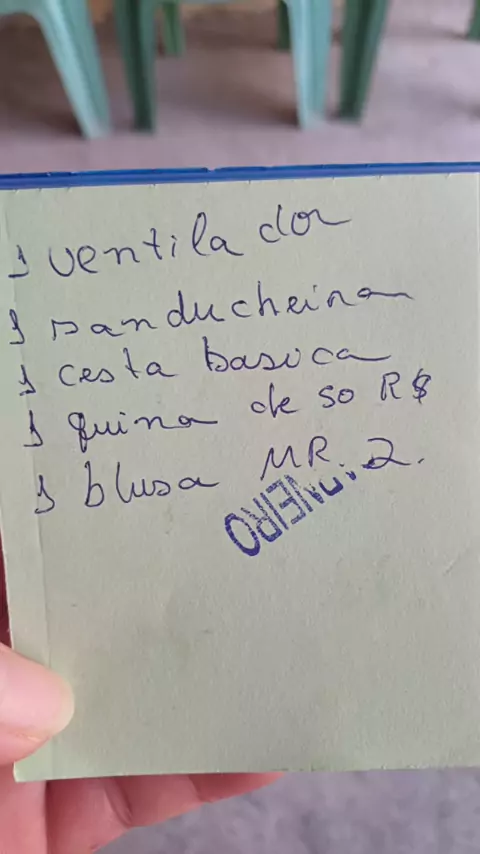 1 ventilador
1 sanducheira
1 cesta basica
1 quina de 50 R$
1 blusa MR.2.
NEIRO